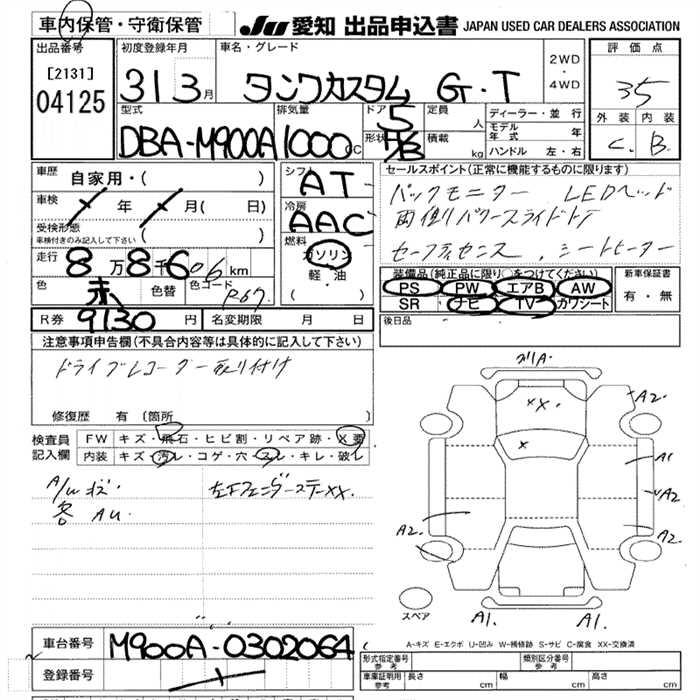 車内保管・守衛保管
JU 愛知 出品申込書 JAPAN USED CAR DEALERS ASSOCIATION
出品番号 [2131] 04125
初度登録年月 31 3月
車名・グレード タンクカスタム G・T
2WD・4WD
評価点 35
外装 C. 内装 B.
型式 DBA-M900A
排気量 1000cc
ドア 5
形状 H/B
定員 人
積載 kg
ディーラー・並行
モデル年式 年
ハンドル 左・右
車歴 自家用・( )
車検 年 月( 日)
受検形態 車検付きのみ記入して下さい ( )
走行 8万8千606km
色 赤 色替 色コード R67.
R券 9130円
名変期限 月 日
シフト AT
冷房 AAC
燃料 ガソリン
軽・油
( )
セールスポイント(正常に機能するものに限ります)
バックモニター LEDヘッド
両側パワースライドドア
セーフティセンス . シートヒーター
装備品(純正品に限り○をつけてください)
PS PW エアB AW
SR ナビ TV カワシート
新車保証書 有・無
後日品
注意事項申告欄(不具合内容等は具体的に記入して下さい)
ドライブレコーダー取り付け
修復歴 有〔箇所 〕
検査員記入欄
FW キズ・飛石・ヒビ割・リペア跡・X要
内装 キズ・汚レ・コゲ・穴・スレ・キレ・破レ
A/W キズ.
各 AU.
左F フェンダーステーXX.
XX.
X
A2.
A1
A2
A2.
A2.
A1.
A1.
スペア
A-キズ E-エクボ U-凹み W-補修跡 S-サビ C-腐食 XX-交換済
車台番号 M900A-0302064
登録番号
形式指定番号 参考
類別区分番号 参考
車庫証明用 参考 長さ cm 幅 cm 高さ cm